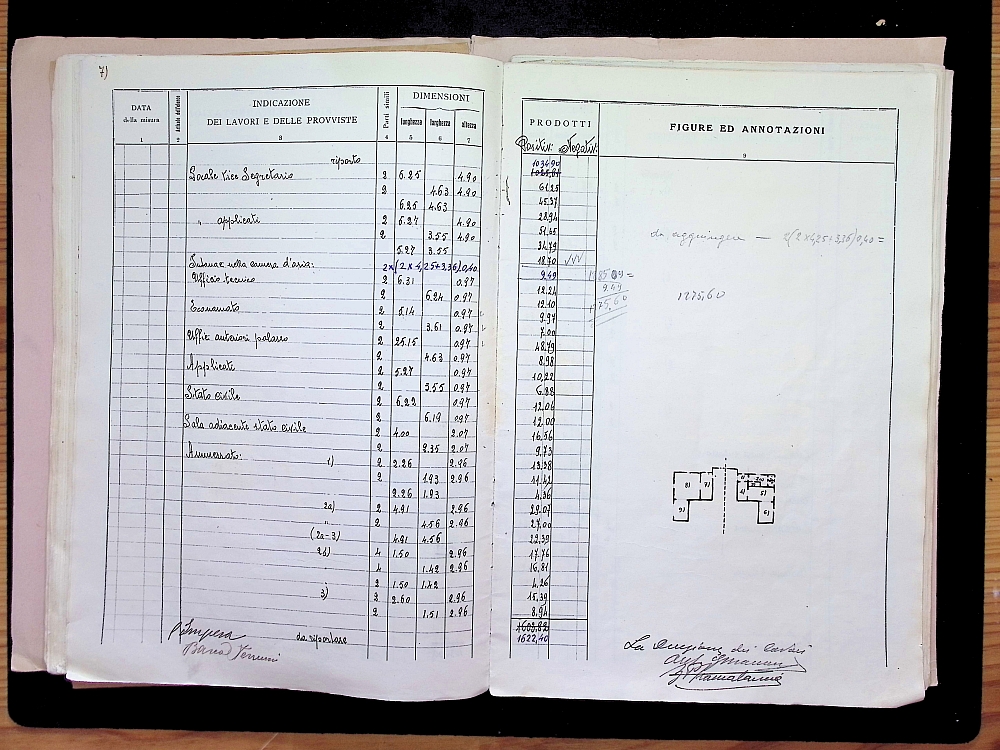 7)
DATA
della misura
Articolo dell'elenco
INDICAZIONE
DEI LAVORI E DELLE PROVVISTE
Parti simili
DIMENSIONI
lunghezza larghezza altezza
1 2 3 4 5 6 7
riporto
Locale vice Segretario 2 6.25 4.90
2 4.63 4.90
6.25 4.63
" applicati 2 6.27 4.90
2 3.55 4.90
5.27 3.55
nella camera d'aria: 2x(2x4,25+3,36)0,40
Ufficio tecnico 2 6.31 0.97
2 6.24 0.97
Economato 2 5.14 0.97
2 3.61 0.97
Uffic anteriori palazzo 2 25.15 0.97
2 4.63 0.97
Applicati 2 5.27 0.97
2 3.55 0.97
Stato civile 2 6.22 0.97
2 6.19 0.97
Sala adiacente stato civile 2 4.00 2.07
2 2.35 2.07
Ammezzato: 1) 2 2.26 2.96
2 1.93 2.96
2.26 1.93
2a) 2 4.91 2.96
" 2 4.56 2.96
(2a-3) 4.91 4.56
2b) 4 1.50 2.96
4 1.42 2.96
2 1.50 1.42
3) 2 2.60 2.96
2 1.51 2.96
da riportare
Impresa
PRODOTTI
Positivi Negativi
FIGURE ED ANNOTAZIONI
9
1034.90
61.25
45.37
28.94
51.45
34.79
18.70
9.49
12.24
12.10
9.97
7.00
48.79
8.98
10.22
6.88
12.06
12.00
16.56
9.73
13.38
11.42
4.36
29.07
27.00
22.39
17.76
16.81
4.26
15.39
8.94
1603.82
1622.40
da aggiungere — 2(2x4,25+3,36)0,40=
9.49
1275,60
8) 7) 9) 4) 5) 6)
La Direzione dei lavori